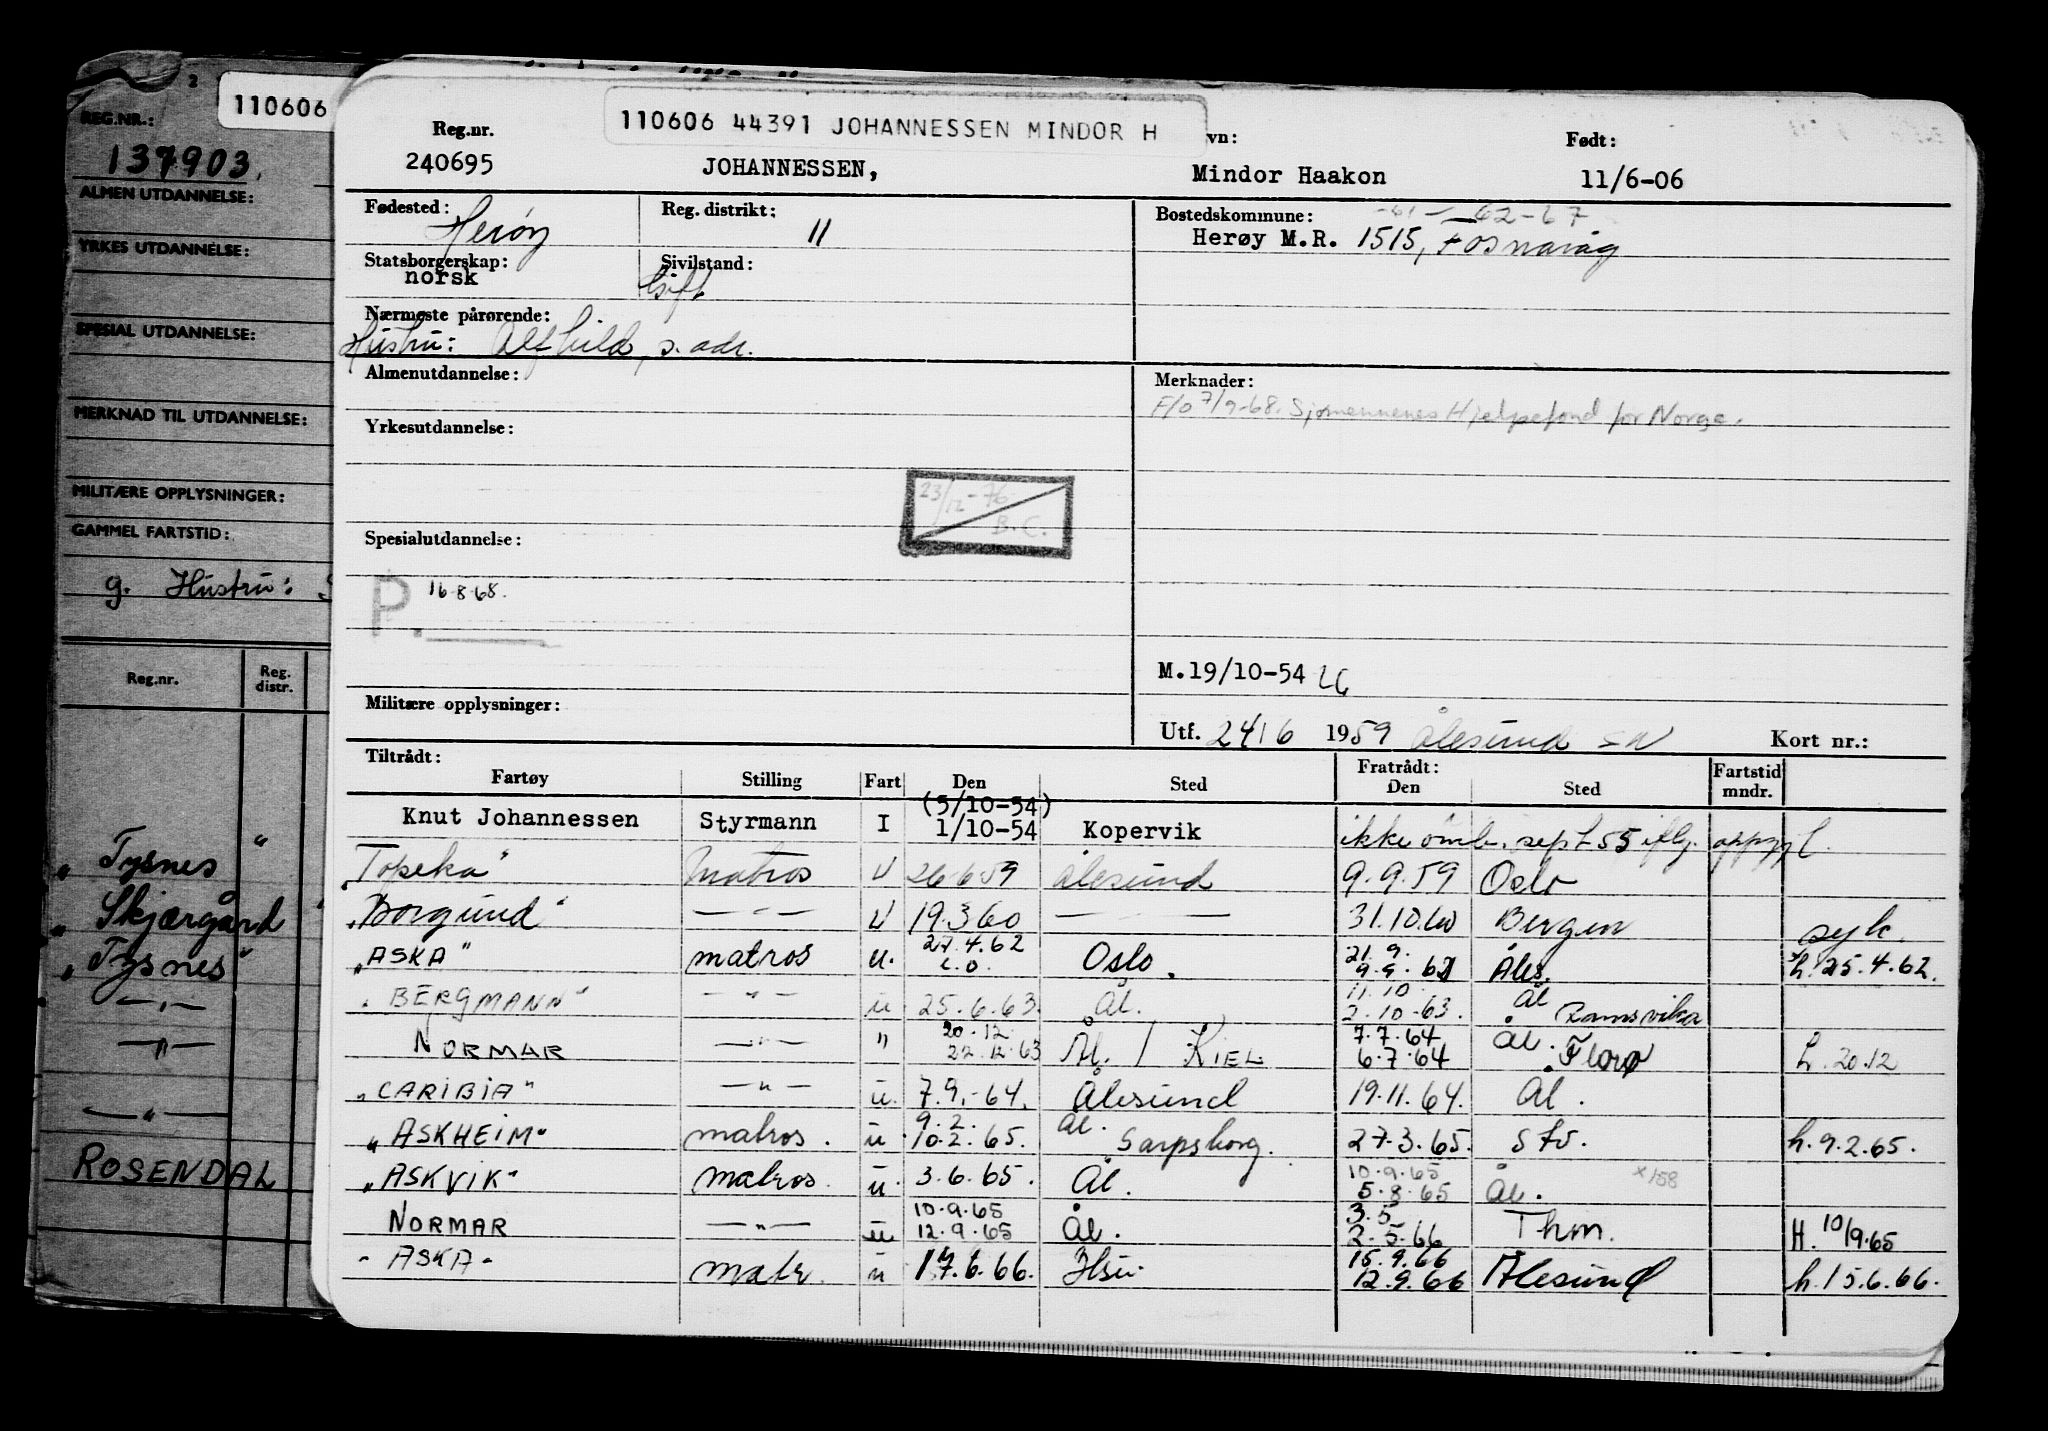 2
110606
REG.NR.:
137903.
ALMEN UTDANNELSE:
YRKES UTDANNELSE:
SPESIAL UTDANNELSE:
MERKNAD TIL UTDANNELSE:
MILITÆRE OPPLYSNINGER:
GAMMEL FARTSTID:
g. Hustru:
Reg.nr. Reg. distr.
" Tysnes "
" Skjærgård "
" Tysnes "
— " —
— " —
— " —
ROSENDAL
110606 44391 JOHANNESSEN MINDOR H
Reg.nr. vn: Født:
240695 JOHANNESSEN, Mindor Haakon 11/6-06
Fødested: Herøy Reg. distrikt: 11 Bostedskommune: -61- 62-67
Herøy M.R. 1515, Fosnavåg
Statsborgerskap: norsk Sivilstand: Gift
Nærmeste pårørende:
Hustru: Alfhild, s. adr.
Almenutdannelse: Merknader:
F/o 7/9-68. Sjømennenes Hjelpefond for Norge.
Yrkesutdannelse:
23/12-76 B.C.
Spesialutdannelse:
P. 16.8.68.
M.19/10-54 LG
Militære opplysninger:
Utf. 24/6 1959 Ålesund Kort nr.:
Tiltrådt: Fratrådt: Fartstid mndr.
Fartøy Stilling Fart Den Sted Den Sted
(5/10-54)
Knut Johannessen Styrmann I 1/10-54 Kopervik ikke omb. sept 55 iflg. oppg.
"Topeka" Matros U 26 6 59 Ålesund 9.9.59 Oslo
"Borgund" — " — U 19.3 60 — 31.10.60 Bergen syk.
"ASKA" matros u. 27.4.62 Oslo. 21.9. 9.9.62 Åles. h. 25.4.62.
"BERGMANN" — " — u. 25.6.63. Ål. 11.10 2.10.63. Ål Ramsvika
NORMAR — " — " 20.12 22.12.63 Ål. / KIEL 7.7.64 6.7.64 Ål. Florø h. 20.12
"CARIBIA" — " — u. 7.9.-64. Ålesund 19.11.64. Ål.
"ASKHEIM" matros. u. 9.2. 10.2.65. Ål. Sarpsborg. 27.3.65. Stv. h. 9.2.65.
"ASKVIK" matros. u. 3.6.65. Ål. 10.9.65 5.8.65 Ål. x/58
NORMAR — " — u 10.9.65 12.9.65 Ål. 3.5 2.5.66 Thm. H. 10/9.65
- ASKA - matr. u 17.6.66. 15.9.66 12.9.66 Ålesund h. 15.6.66.